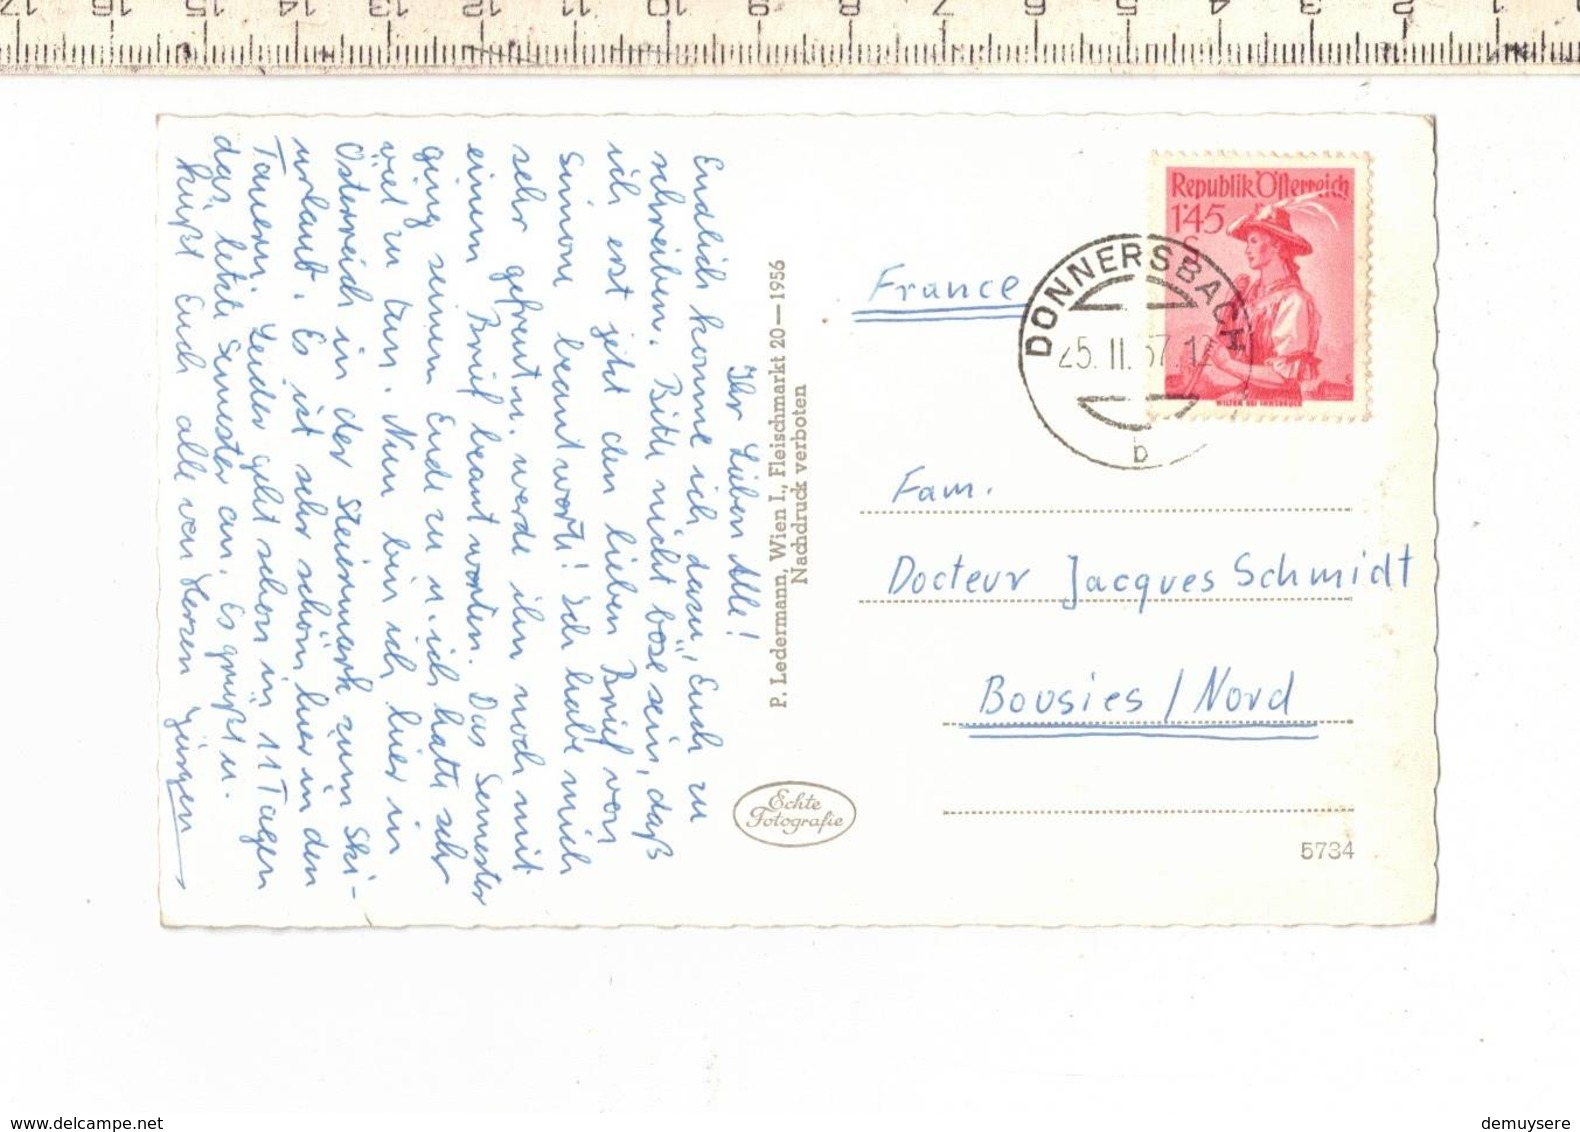 17 16 15 14 13 12 11 10 9 8 7 6 5 4 3 2 1
Ihr Lieben Alle!
Endlich komme ich dazu, Euch zu
schreiben. Bitte nicht böse sein, daß
ich erst jetzt den lieben Brief von
Simon beantworte! Ich habe mich
sehr gefreut u. werde ihm noch mit
einem Brief beantworten. Das Semester
ging seinem Ende zu u. ich hatte sehr
viel zu tun. Nun bin ich hier in
Österreich in der Steiermark zum Ski-
urlaub. Es ist sehr schön hier in den
Tauern. Leider geht schon in 11 Tagen
das letzte Semester an. Es grüßt u.
küßt Euch alle von Herzen Jürgen
P. Ledermann, Wien I., Fleischmarkt 20—1956
Nachdruck verboten
Echte
Fotografie
Republik Österreich
1'45
S
WILTEN BEI INNSBRUCK
DONNERSBACH
25. II. 57. 12
b
France
Fam.
Docteur Jacques Schmidt
Bousies / Nord
5734
demuysere